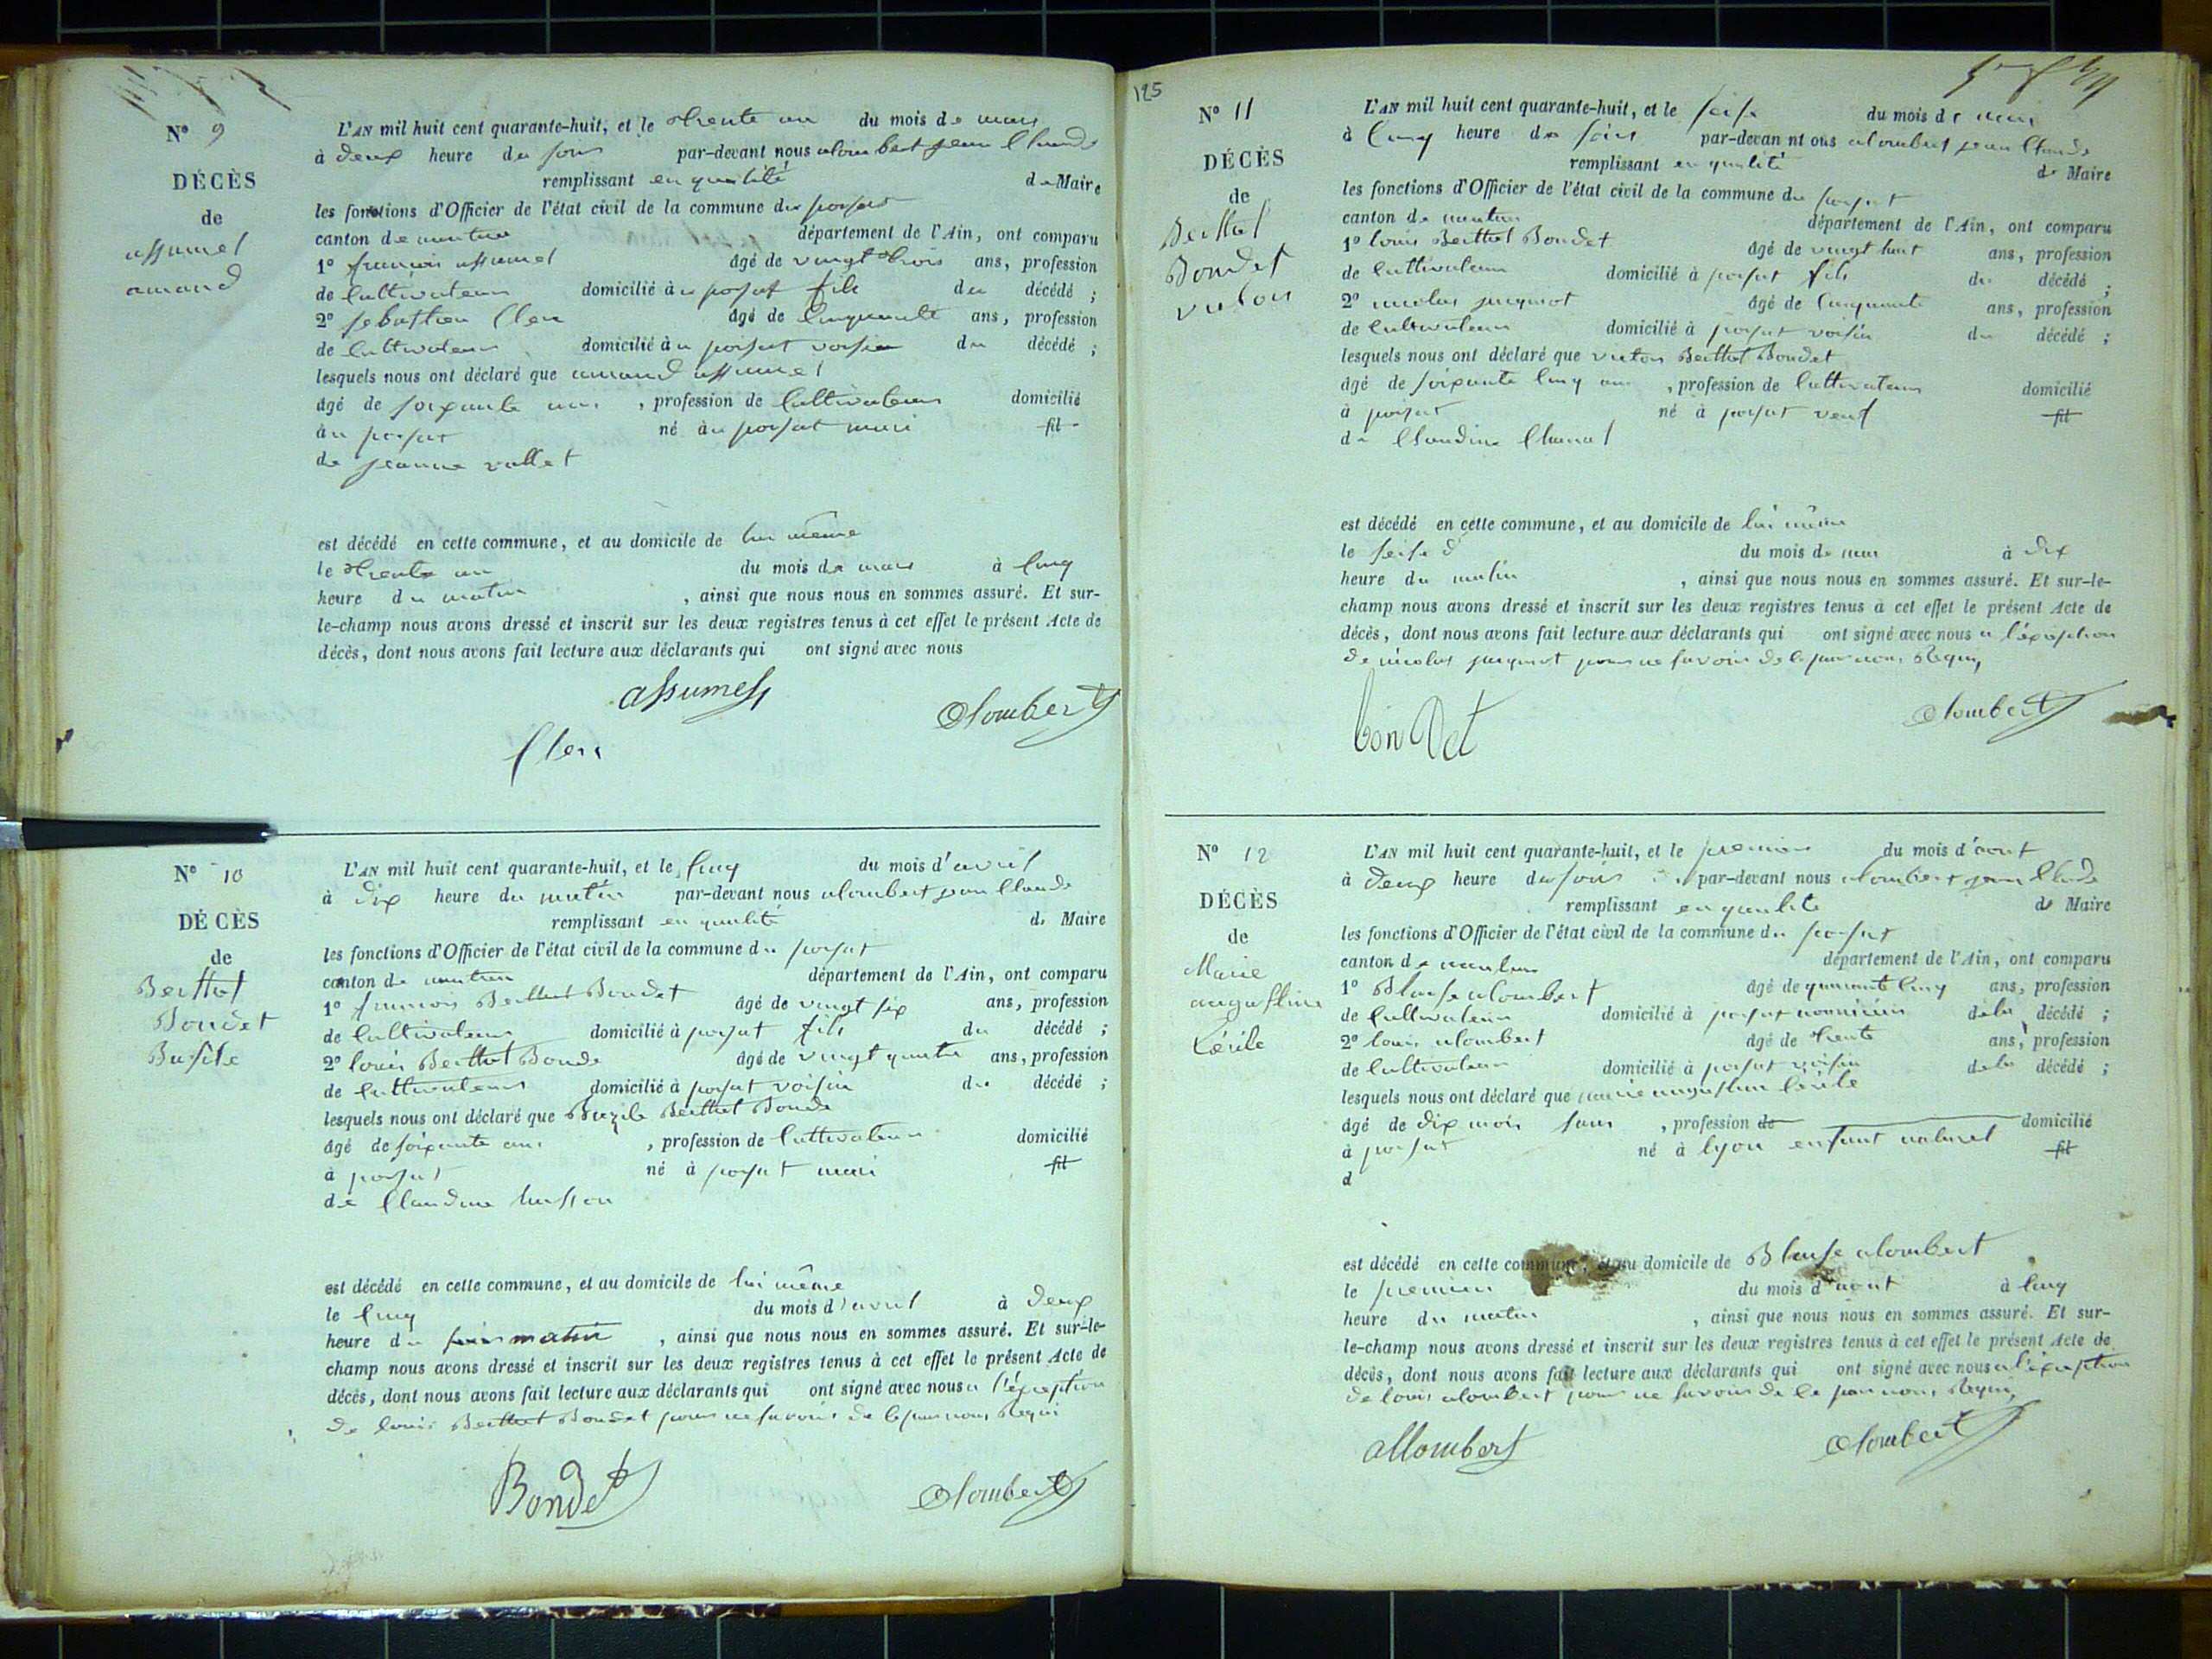 N° 9
DÉCÈS
de
assumel
amand
L'AN mil huit cent quarante-huit, et le trente un du mois de mars
à deux heure du soir par-devant nous alombert jean Claude
remplissant en qualité de Maire
les fonctions d'Officier de l'état civil de la commune du poizat
canton de nantua département de l'Ain, ont comparu
1° francois assumel âgé de vingt trois ans, profession
de Cultivateur domicilié au poizat fils du décédé ;
2° sebastien Clerc âgé de Cinquante ans, profession
de Cultivateur domicilié au poizat voisin du décédé ;
lesquels nous ont déclaré que amand assumel
âgé de soixante ans , profession de Cultivateur domicilié
au poizat né au poizat mari fil
de jeanne vallet
est décédé en cette commune, et au domicile de lui même
le trente un du mois de mars à Cinq
heure du matin , ainsi que nous nous en sommes assuré. Et sur-
le-champ nous avons dressé et inscrit sur les deux registres tenus à cet effet le présent Acte de
décès, dont nous avons fait lecture aux déclarants qui ont signé avec nous
assumel
alombert
Clerc
N° 10
DÉCÈS
de
Berthet
Bondet
Basile
L'AN mil huit cent quarante-huit, et le Cinq du mois d'avril
à dix heure du matin par-devant nous alombert jean Claude
remplissant en qualité de Maire
les fonctions d'Officier de l'état civil de la commune du poizat
canton de nantua département de l'Ain, ont comparu
1° francois Berthet Bondet âgé de vingt six ans, profession
de Cultivateur domicilié à poizat fils du décédé ;
2° louis Berthet Bonde âgé de vingt quatre ans, profession
de Cultivateur domicilié à poizat voisin du décédé ;
lesquels nous ont déclaré que Bazile Berthet Bonde
âgé de soixante ans , profession de Cultivateur domicilié
à poizat né à poizat mari fil
de Claudine
est décédé en cette commune, et au domicile de lui même
le Cinq du mois d'avril à deux
heure du soir matin , ainsi que nous nous en sommes assuré. Et sur-le-
champ nous avons dressé et inscrit sur les deux registres tenus à cet effet le présent Acte de
décès, dont nous avons fait lecture aux déclarants qui ont signé avec nous a l'éxception
de louis Berthet Bondet pour ne savoir de le par nous Requi
Bondet
alombert
125
N° 11
DÉCÈS
de
Berthet
Bondet
victor
L'AN mil huit cent quarante-huit, et le seise du mois de mai
à Cinq heure du soir par-devan nt ous alombert jean Claude
remplissant en qualité de Maire
les fonctions d'Officier de l'état civil de la commune du poizat
canton de nantua département de l'Ain, ont comparu
1° louis Berthet Bondet âgé de vingt huit ans, profession
de Cultivateur domicilié à poizat fils du décédé ;
2° nicolas jacquiot âgé de Cinquante ans, profession
de Cultivateur domicilié à poizat voisin du décédé ;
lesquels nous ont déclaré que victor Berthet Bondet
âgé de soixante Cinq ans , profession de Cultivateur domicilié
à poizat né à poizat veuf fil
de Claudine
est décédé en cette commune, et au domicile de lui même
le seise d du mois de mai à dix
heure du matin , ainsi que nous nous en sommes assuré. Et sur-le-
champ nous avons dressé et inscrit sur les deux registres tenus à cet effet le présent Acte de
décès, dont nous avons fait lecture aux déclarants qui ont signé avec nous a l'éxception
de nicolas jacquiot pour ne savoir de le par nous Requi
bondet
alombert
N° 12
DÉCÈS
de
Marie
augustine
Cécile
L'AN mil huit cent quarante-huit, et le premier du mois d'aout
à deux heure du soir par-devant nous alombert jean Claude
remplissant en qualité de Maire
les fonctions d'Officier de l'état civil de la commune du poizat
canton de nantua département de l'Ain, ont comparu
1° Blaise alombert âgé de quarante Cinq ans, profession
de Cultivateur domicilié à poizat nourricier de la décédé ;
2° louis alombert âgé de trente ans, profession
de Cultivateur domicilié à poizat voisin de la décédé ;
lesquels nous ont déclaré que marie augustine Cécile
âgé de dix mois sans , profession de domicilié
à poizat né à lyon enfant naturel fil
d
est décédé en cette commune, et au domicile de Blaise alombert
le premier du mois d'aout à Cinq
heure du matin , ainsi que nous nous en sommes assuré. Et sur-
le-champ nous avons dressé et inscrit sur les deux registres tenus à cet effet le présent Acte de
décès, dont nous avons fait lecture aux déclarants qui ont signé avec nous a l'éxception
de louis alombert pour ne savoir de le par nous Requi
allombert
alombert